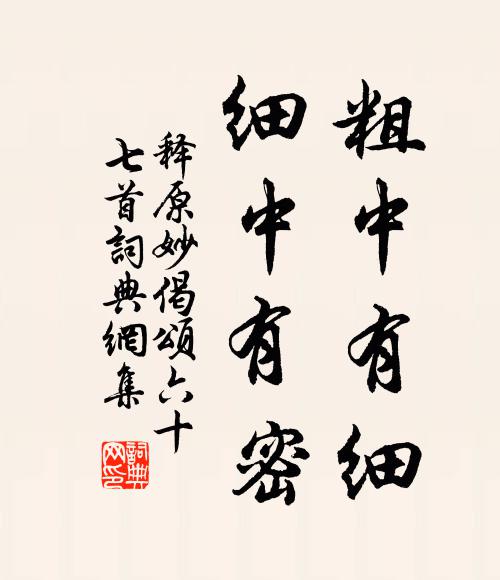 粗中有细
细中有密
释原妙偈頌六十
七首詞典網集
詞典
网印